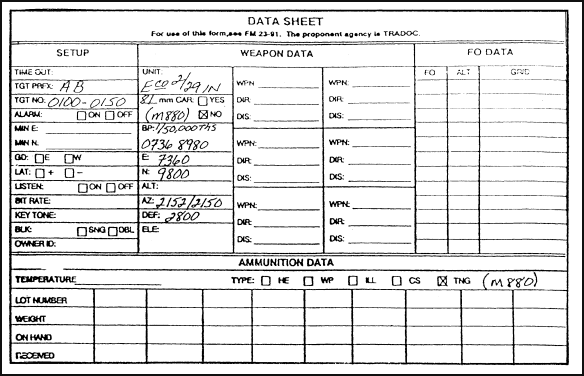 DATA SHEET
For use of this form, see FM 23-91. The proponent agency is TRADOC.
SETUP
TIME OUT:
TGT PRFX: AB
TGT NO: 0100-0150
ALARM: ON OFF
MIN E:
MIN N.
GD: E W
LAT: + -
LISTEN: ON OFF
BIT RATE:
KEY TONE:
BLK: SNG DBL
OWNER ID:
WEAPON DATA
UNIT:
E CO 2/29 IN
81 mm CAR: YES
(M880) NO
BP: 1/50,000 THS
0736 8980
E: 7360
N: 9800
ALT:
AZ: 2152/2150
DEF: 2800
ELE:
WPN: WPN:
DIR: DIR:
DIS: DIS:
WPN: WPN:
DIR: DIR:
DIS: DIS:
WPN: WPN:
DIR: DIR:
DIS: DIS:
FO DATA
FO ALT GRID
AMMUNITION DATA
TEMPERATURE TYPE: HE WP ILL CS TNG (M880)
LOT NUMBER
WEIGHT
ON HAND
RECEIVED